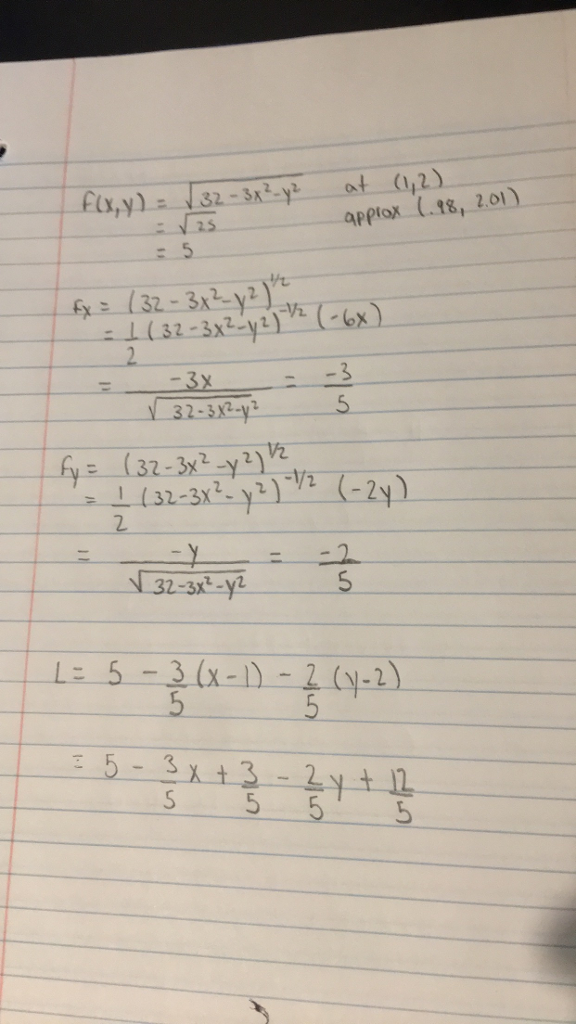 f(x,y) = √32-3x²-y² at (1,2)
= √25 approx (.98, 2.01)
= 5
fx = (32-3x²-y²)^1/2
= 1/2 (32-3x²-y²)^-1/2 (-6x)
= -3x/√32-3x²-y² = -3/5
fy = (32-3x²-y²)^1/2
= 1/2 (32-3x²-y²)^-1/2 (-2y)
= -y/√32-3x²-y² = -2/5
L = 5 - 3/5 (x-1) - 2/5 (y-2)
= 5 - 3/5 x + 3/5 - 2/5 y + 12/5